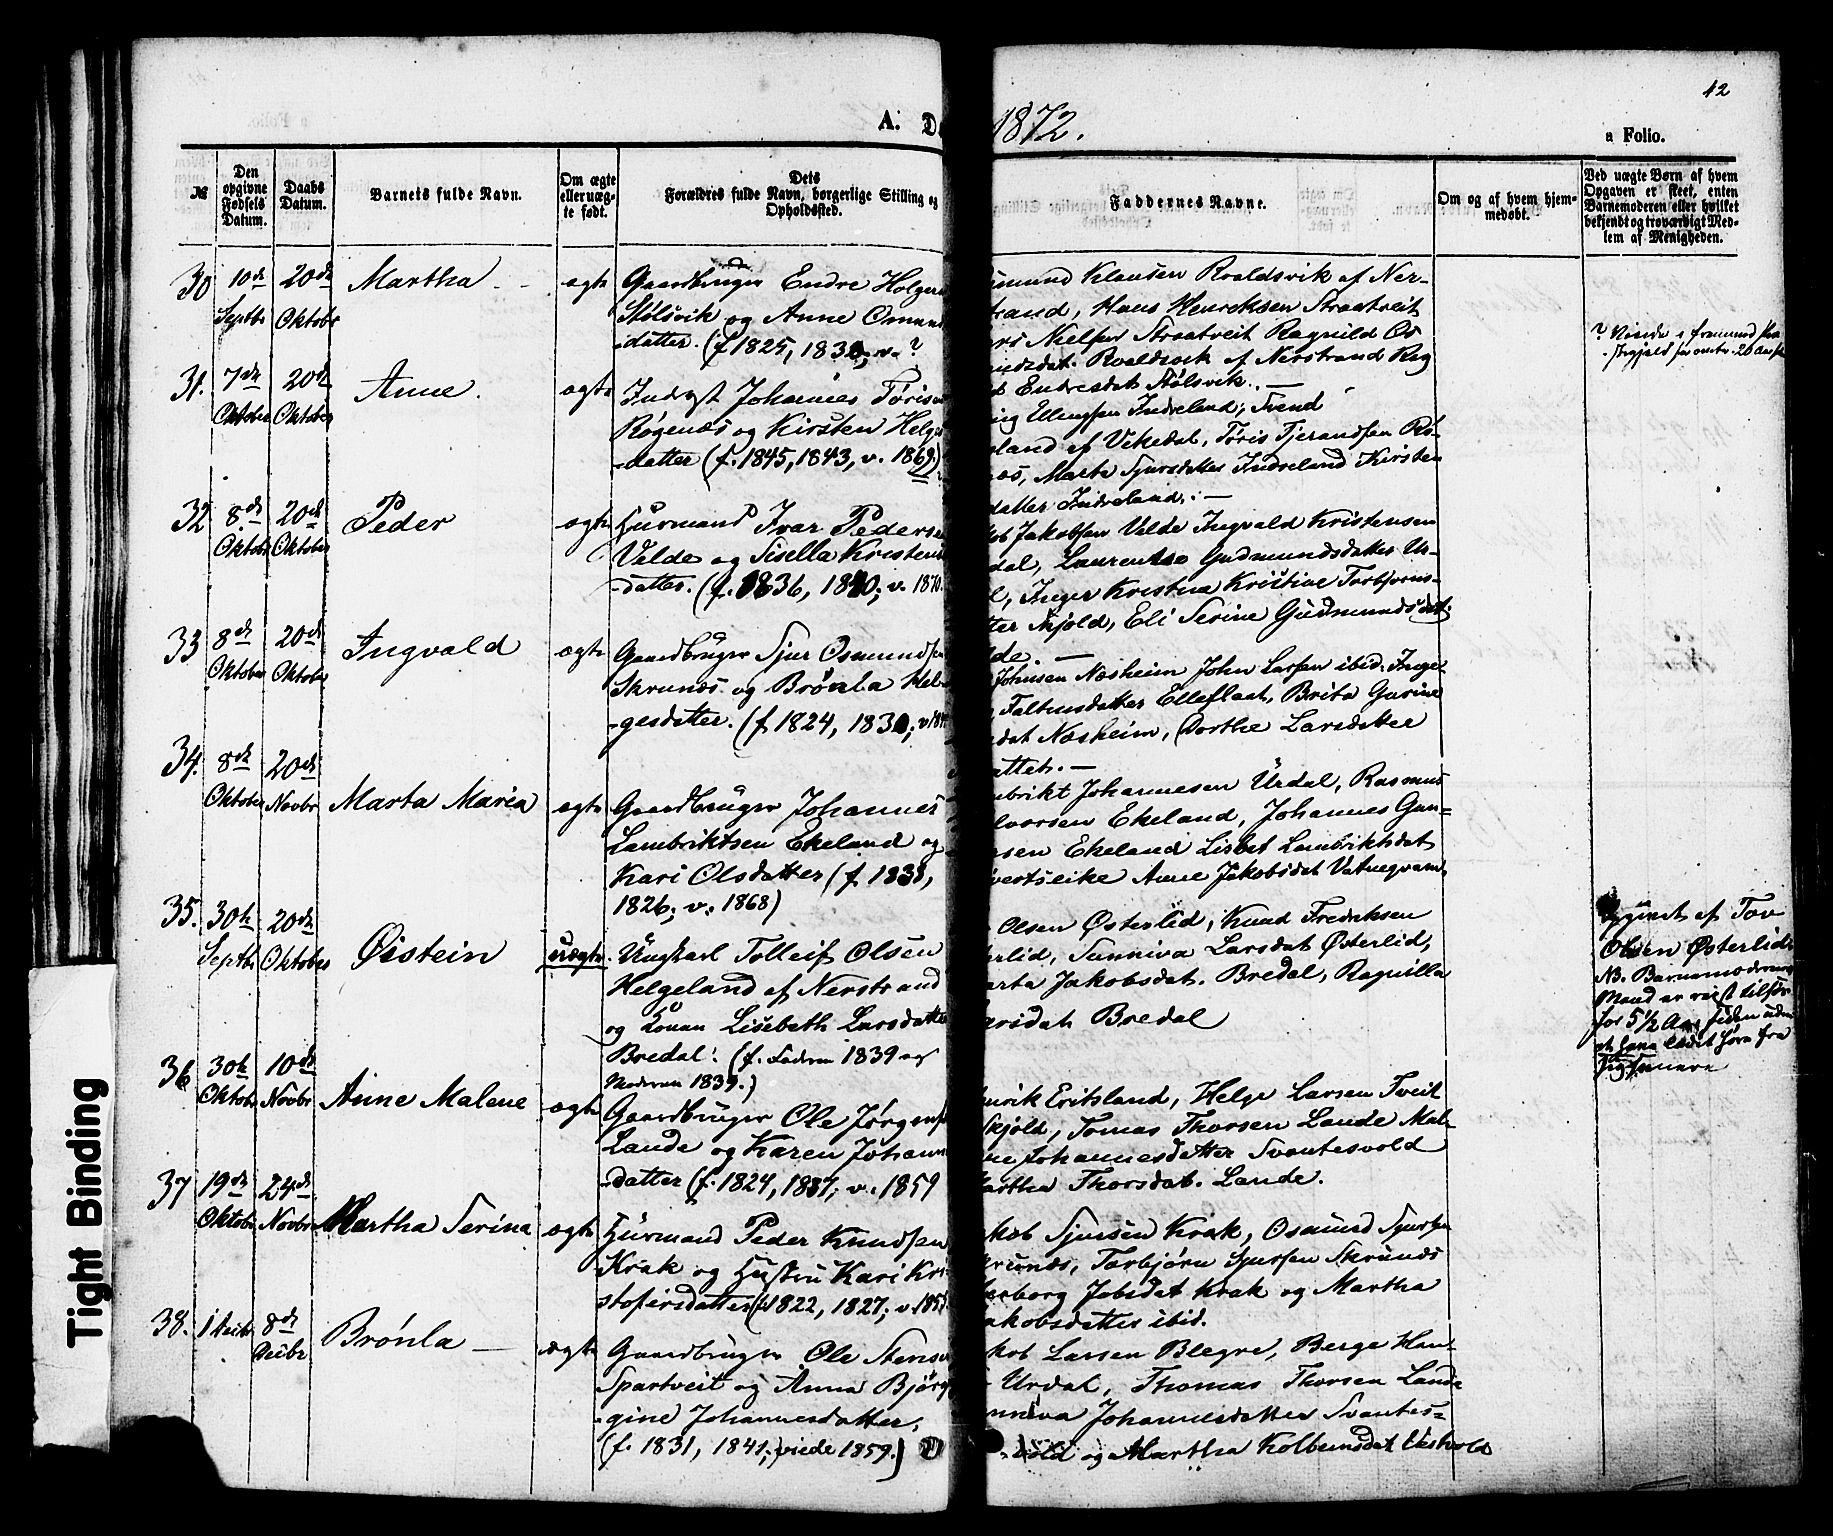 12
A. D
1872.
a Folio.
№
Den opgivne Fødsels Datum.
Daabs Datum.
Barnets fulde Navn.
Om ægte eller uægte født.
Dets Forældres fulde Navn, borgerlige Stilling og Opholdssted.
Faddernes Navne.
Om og af hvem hjemmedøbt.
Ved uægte Børn af hvem Opgaven er skeet, enten Barnemoderen eller hvilket bekjendt og troværdigt Medlem af Menigheden.
30
10de Septbr
20de Oktobr
Martha
ægte
Gaardbruger Endre Holger
Stølsvik og Anne Omun
datter. (f 1825, 1830, v. ?
Klausen Roaldsvik af Ner-
strand, Hans Henriksen Straatveit
Nielsen Straatveit Ragnild Os
dat. Roaldsvik af Nerstrand Rag
Endresdat Stølsvik. —
31.
7de Oktober
20de Oktober
Anne.
ægte
Inderst Johannes Tøris
Røgenæs og Kirsten Helge
datter (f. 1845, 1843, v. 1869)
Ellengsen Indreland, Svend
land af Vikedal, Tøris Tjerandsen Rø-
næs, Marta Sjursdatter Indreland Kirsten
datter Indreland. —
32
8de Oktobr
20de Oktober
Peder
ægte
Husmand Ivar Peders
Velde og Sisella Kristens
datter. (f. 1836, 1840; v. 1870.
Jakobsen Velde Ingvald Kristensen
dal, Gudmundsdatter Ur-
Inger Kristna Kristine Torbjørns-
tter Skjold, Eli Serine Gudmundsdat.
lde. —
33
8de Oktober
20de Oktober
Ingvald
ægte
Gaardbruger Sjur Osmundsen
Skrunæs og Brønla Hel-
gesdatter. (f 1824, 1830; v 184
Johnsen Næsheim John Larsen ibid. Inge
Elleflaat, Brita Gurine
dat Næsheim, Dorthe Larsdatter
attet. —
34.
8de Oktober
20de Novbr
Marta Maria
ægte
Gaardbruger Johannes
Lambriktsen Ekeland og
Kari Olsdatter (f 1838,
1826; v. 1868)
brikt Johannesen Urdal, Rasmus
lvorsen Ekeland, Johannes Gun-
sen Ekeland Lisbet Lambriktsdat
Anne Jakobsdat Vatnegvam
35.
30te Septbr
20de Oktober
Øistein
uægte
Ungkarl Tolleif Olsen
Helgeland af Nerstrand
og Konen Lisebeth Larsdatter
Bredal. (f. Faderen 1839 og
Moderen 1839.)
Olsen Østerlid, Knud Fredriksen
erlid, Sunniva Larsdat Østerlid,
arta Jakobsdat. Bredal, Ragnilla
ersdat Bredal
36
30te Oktobr
10de Novbr
Anne Malene
ægte
Gaardbruger Ole Jørgens
Lande og Karen Johann
datter (f. 1824, 1837; v. 1859
nrik Eritsland, Helge Larsen Tveit
Skjold, Tomas Thorsen Lande Mal-
ne Johannesdatter Svantesvold
artha Thorsdat. Lande.
37
19de Oktobr
24de Novbr
Martha Serina
ægte
Husmand Peder Knudsen
Krak og Hustru Kari Kri
stofersdatter (f. 1822, 1827; v. 185
kob Sjursen Krak, Osmund Sjursen
krunæs, Torbjørn Sjursen Skrunæs
erborg Jobsdat Krak og Martha
akobsdatter ibid.
38.
1 Decbr
8de Decbr
Brønla
ægte
Gaardbruger Ole Stens
Spartveit og Anna Bjørg
gine Johannesdatter,
(f. 1831, 1841; viede 1859.)
kob Larsen Blegre, Berge Han-
Urdal, Thomas Thorsen Lande
nniva Johannesdatter Svantes-
vold og Martha Kolbeinsdat Vestvold
? Viede i
af Tov
Olsen Østerlid.
NB. Barnemoderens
Mand er reist tilsjøs
for 5½ Aar siden uden
at have ladet høre fra
sig senere
Tight Binding